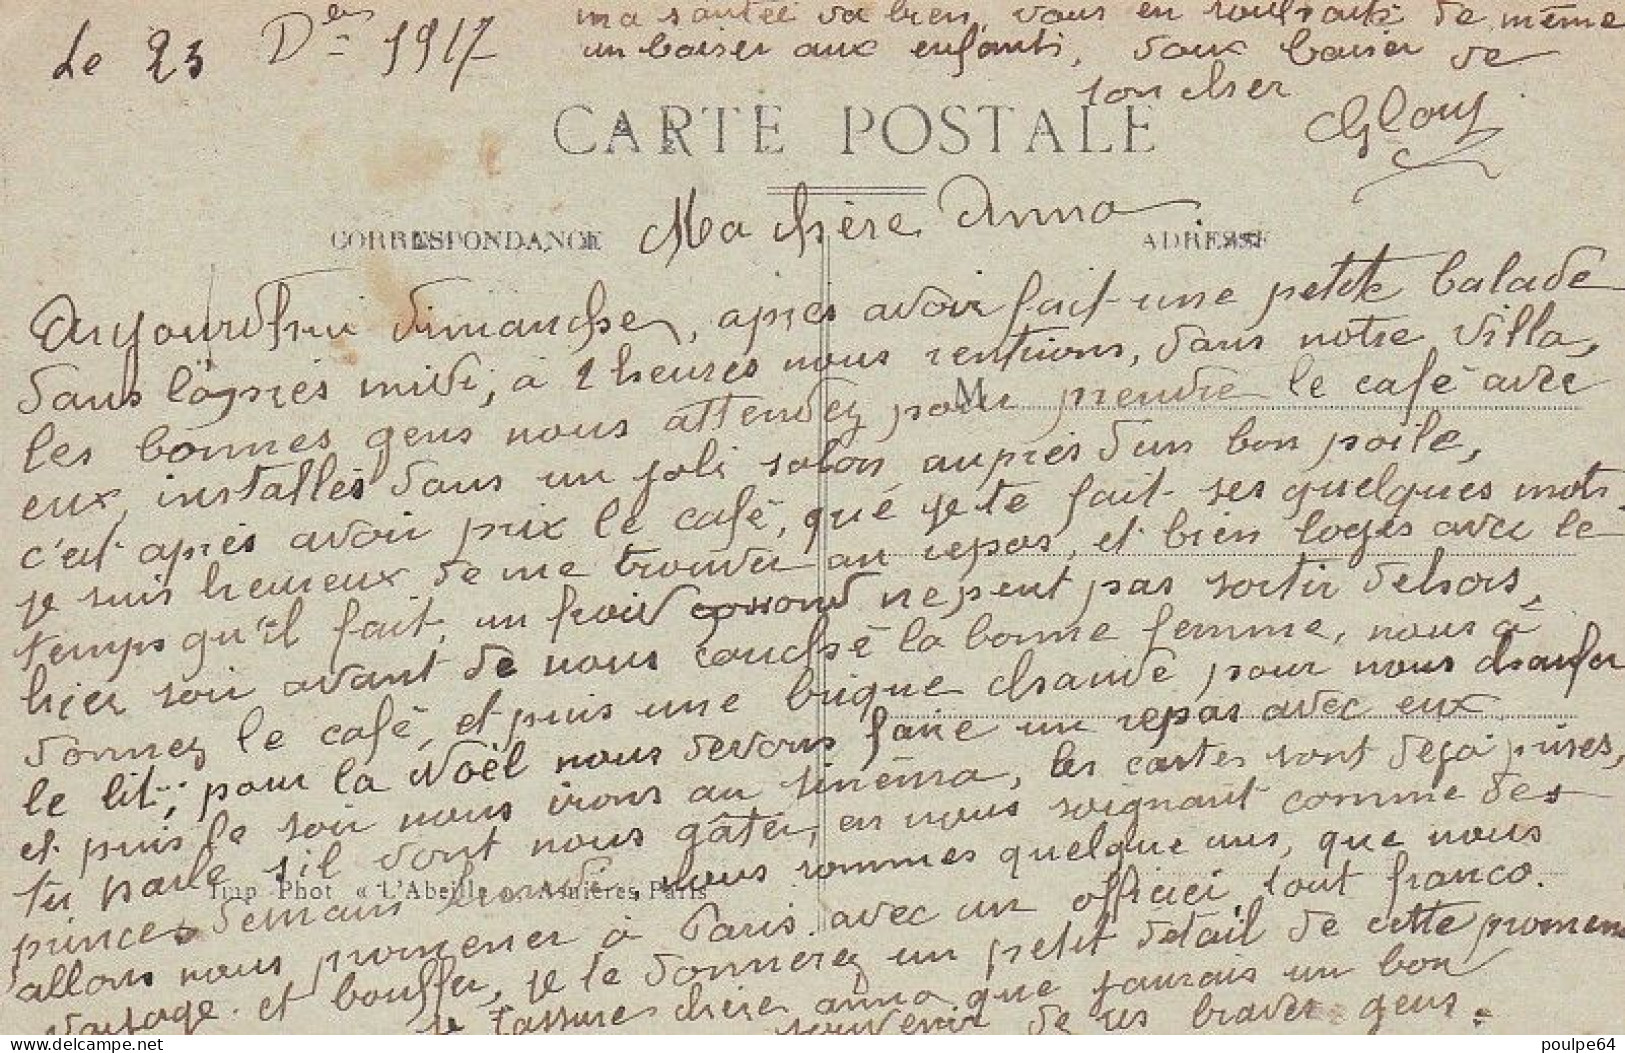 Le 23 Dbre 1917
ma santée va bien, vous en souhaite de même
un baiser aux enfants, doux baiser de
ton cher
CARTE POSTALE
Ma chère Anna
CORRESPONDANCE
ADRESSE
Aujourd'hui dimanche, après avoir fait une petite balade
dans l'après midi, à 2 heures nous rentrions, dans notre villa,
les bonnes gens nous attendez pour prendre le café avec
M
eux, installés dans un joli salon auprès d'un bon poile,
c'est après avoir prix le café, que je te fait ses quelques mots,
je suis heureux de me trouver au repos, et bien logés avec le
temps qu'il fait, un froid ne peut pas sortir dehors,
hier soir avant de nous couché la bonne femme, nous à
donnez le café, et puis une brique chaude pour nous chaufer
le lit; pour la Noël nous devons faire un repas avec eux
et puis le soir nous irons au sinéma, les cartes sont déjà prises,
tu parle s'il vont nous gâter, en nous soignant comme des
princes demain nous sommes quelque uns, que nous
Imp Phot « L'Abeille » Asnières, Paris
allons nous promener à Paris avec un officier, tout franco.
voyage et bouffer, je te donnerez un petit détail de cette promen
je t'assure chère anna que j'aurais un bon
souvenir de ses braves gens.
www.delcampe.net
poulpe64